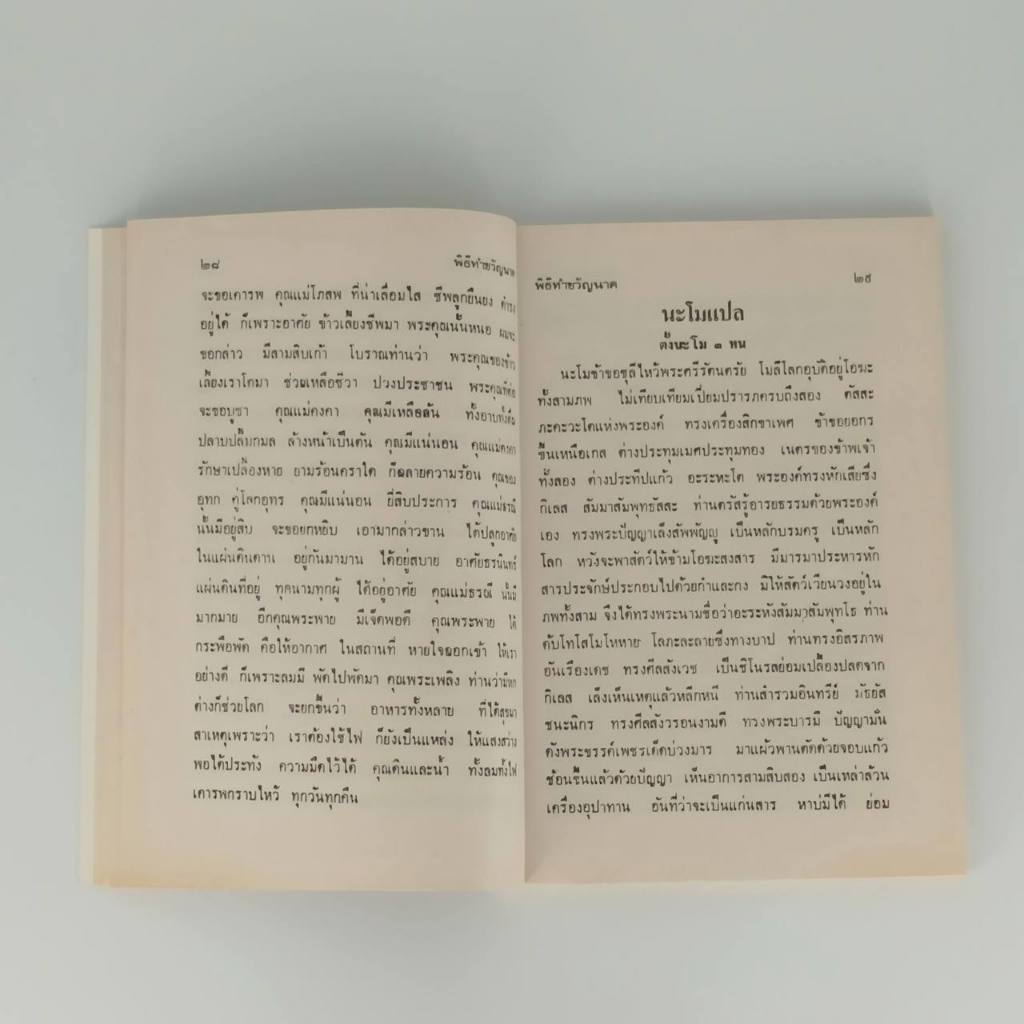 ๒๘ พิธีทำขวัญนาค
จะขอเคารพ คุณแม่โภสพ ที่น่าเลื่อมใส ชีพลูกยืนยง ดำรง
อยู่ได้ ก็เพราะอาศัย ข้าวเลี้ยงชีพมา พระคุณนั้นหนอ ผมจะ
ขอกล่าว มีสามสิบเก้า โบราณท่านว่า พระคุณของข้าว
เลี้ยงเราโตมา ช่วยเหลือชีวา ปวงประชาชน พระคุณที่ต่อ
จะขอบูชา คุณแม่คงคา คุณมีเหลือล้น ทั้งอาบทั้งดื่ม
ปลาบปลื้มกมล ล้างหน้าเป็นต้น คุณมีแน่นอน คุณแม่คงคา
รักษาเปลื้องหาย ยามร้อนคราใด ก็ฉลายความร้อน คุณของ
อุทก คู่โลกอุทร คุณมีแน่นอน ยี่สิบประการ คุณแม่ธรณี
นั้นมีอยู่สิบ จะขอยกหยิบ เอามากล่าวขาน ได้ปลูกอาศัย
ในแผ่นดินดาน อยู่กันมานาน ได้อยู่สบาย อาศัยธรนินทร์
แผ่นดินที่อยู่ ทุคนามทุกผู้ ได้อยู่อาศัย คุณแม่ธรณี นั้นมี
มากมาย อีกคุณพระพาย มีเจ็ดพอดี คุณพระพาย ได้
กระพือพัด คือให้อากาศ ในสถานที่ หายใจออกเข้า ให้เรา
อย่างดี ก็เพราะลมมี พัดไปพัดมา คุณพระเพลิง ท่านว่ามีหก
ต่างก็ช่วยโลก จะยกขึ้นว่า อาหารทั้งหลาย ที่ได้สุขมา
สาเหตุเพราะว่า เราต้องใช้ไฟ ก็ยังเป็นแหล่ง ให้แสงสว่าง
พอได้ประทัง ความมืดไว้ได้ คุณดินและน้ำ ทั้งลมทั้งไฟ
เคารพกราบไหว้ ทุกวันทุกคืน
พิธีทำขวัญนาค ๒๙
นะโมแปล
ตั้งนะโม ๓ หน
นะโมข้าขอชุลีไหว้พระศรีรัตนตรัย โมลีโลกอุบัติอยู่โอฆะ
ทั้งสามภพ ไม่เทียบเทียมเปี่ยมปรารภครบถึงสอง ตัสสะ
ภะคะวะโตแห่งพระองค์ ทรงเครื่องสิกขาเพศ ข้าขอยอกร
ขึ้นเหนือเกส ต่างประทุมเมศประทุมทอง เนตรของข้าพเจ้า
ทั้งสอง ต่างประทีปแก้ว อะระหะโต พระองค์ทรงหักเสียซึ่ง
กิเลส สัมมาสัมพุทธัสสะ ท่านตรัสรู้อารยธรรมด้วยพระองค์
เอง ทรงพระปัญญาเล็งสัพพัญญู เป็นหลักบรมครู เป็นหลัก
โลก หวังจะพาสัตว์ให้ข้ามโอฆะสงสาร มีมารมาประหารหัก
สารประจักษ์ประกอบไปด้วยกำและกง มิให้สัตว์เวียนวงอยู่ใน
ภพทั้งสาม จึงได้ทรงพระนามชื่อว่าอะระหังสัมมาสัมพุทโธ ท่าน
ดับโทโสโมโหหาย โลภะละลายซึ่งทางบาป ท่านทรงอิสรภาพ
อันเรืองเดช ทรงศีลสังเวช เป็นชิโนรสย่อมเปลื้องปลดจาก
กิเลส เล็งเห็นเหตุแล้วหลีกหนี ท่านสำรวมอินทรีย์ มัธยัส
ชนะนิกร ทรงศีลสังวรอนงามดี ทวงพระบารมี ปัญญามั่น
ดังพระขรรค์เพชรเด็ดบ่วงมาร มาแผ้วพานตัดด้วยจอบแก้ว
ช้อนขึ้นแล้วด้วยปัญญา เห็นอาการสามสิบสอง เป็นเหล่าล้วน
เครื่องอุปาทาน อันที่ว่าจะเป็นแก่นสาร หาบ่มีได้ ย่อม